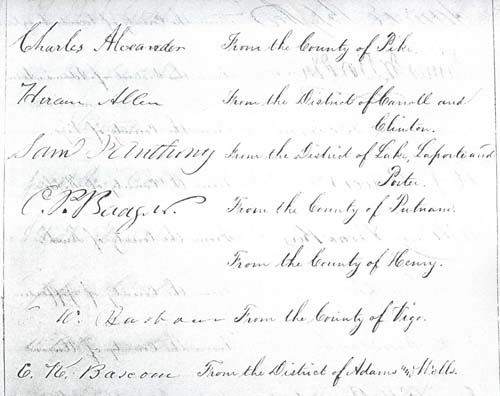 Charles Alexander From the County of Pike.
Hiram Allen From the District of Carroll and
Clinton.
Sam Anthony From the District of Lake, Laporte and
Porter.
C. P. Badger. From the County of Putnam.
From the County of Henry.
W. From the County of Vigo.
C. W. Bascom From the District of Adams & Wells.